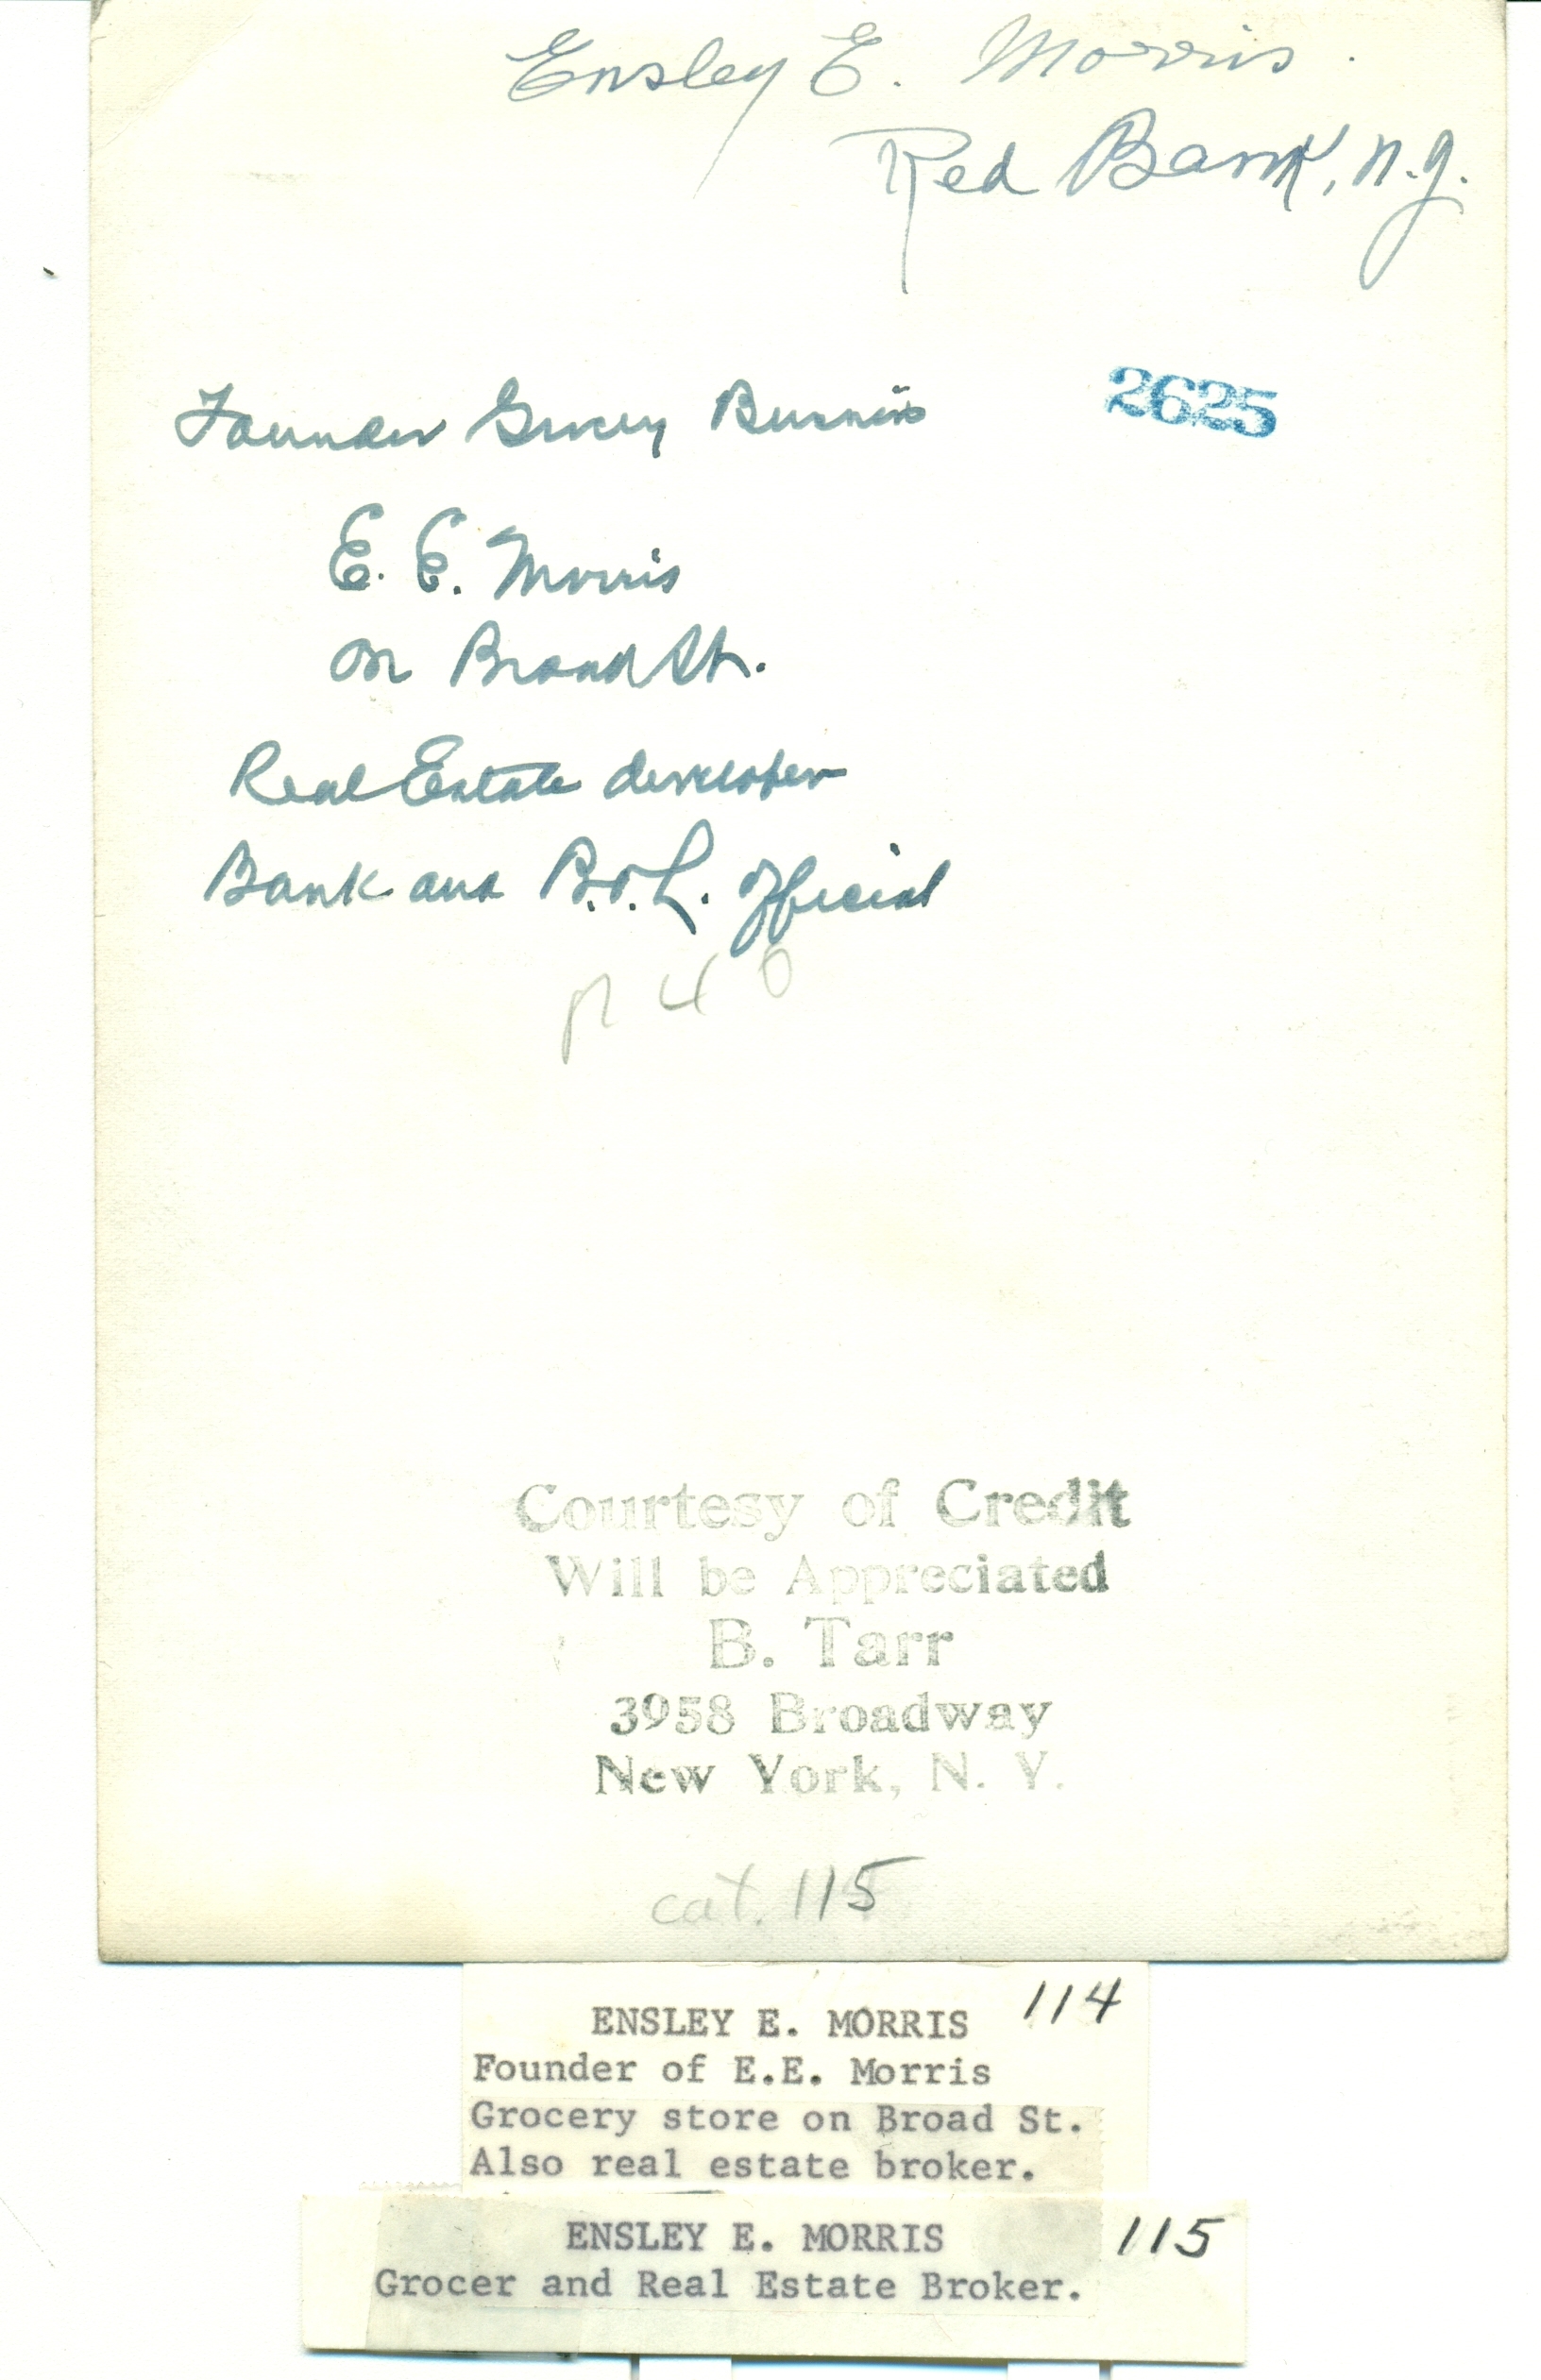 Ensley E. Morris.
Red Bank, N.J.
2625
Founder Grocery Business
E. E. Morris
on Broad St.
Real Estate developer
Bank and official
p 40
Courtesy of Credit
Will be Appreciated
B. Tarr
3958 Broadway
New York, N. Y.
cat. 115
114
ENSLEY E. MORRIS
Founder of E.E. Morris
Grocery store on Broad St.
Also real estate broker.
115
ENSLEY E. MORRIS
Grocer and Real Estate Broker.